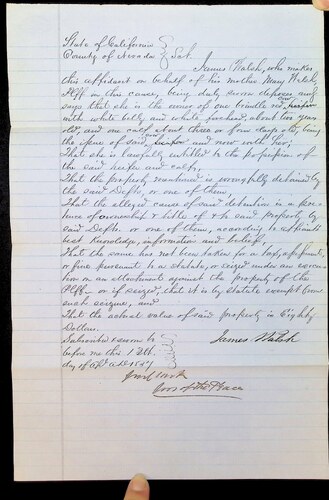 State of California }
County of Nevada } Sct. James Walsh, who makes
this affidavit on behalf of his mother Mary Walsh,
Plff in this cause, being duly sworn deposes and
says that she is the owner of one brindle red cow
with white belly and white forehead, about two years
old, and one calf about three or four days old, being
the issue of said and now with her;
That she is lawfully entitled to the possession of
the said heifer and calf,
That the property is wrongfully detained by
the said Defts, or one of them,
That the alleged cause of said detention is a pre
tence of ownership & title of & to said property by
said Defts. or one of them, according to affiants
best knowledge, information and belief,
That the same has not been taken for a tax, assessment,
or fine pursuant to a statute, or seized under an execu
tion or an attachment against the property of the
Plff – or if seized, that it is by statute exempt from
such seizure, and
That the actual value of said property is Eighty
Dollars.
Subscribed & sworn to
before me this
day of
James Walsh
Jus of the Peace